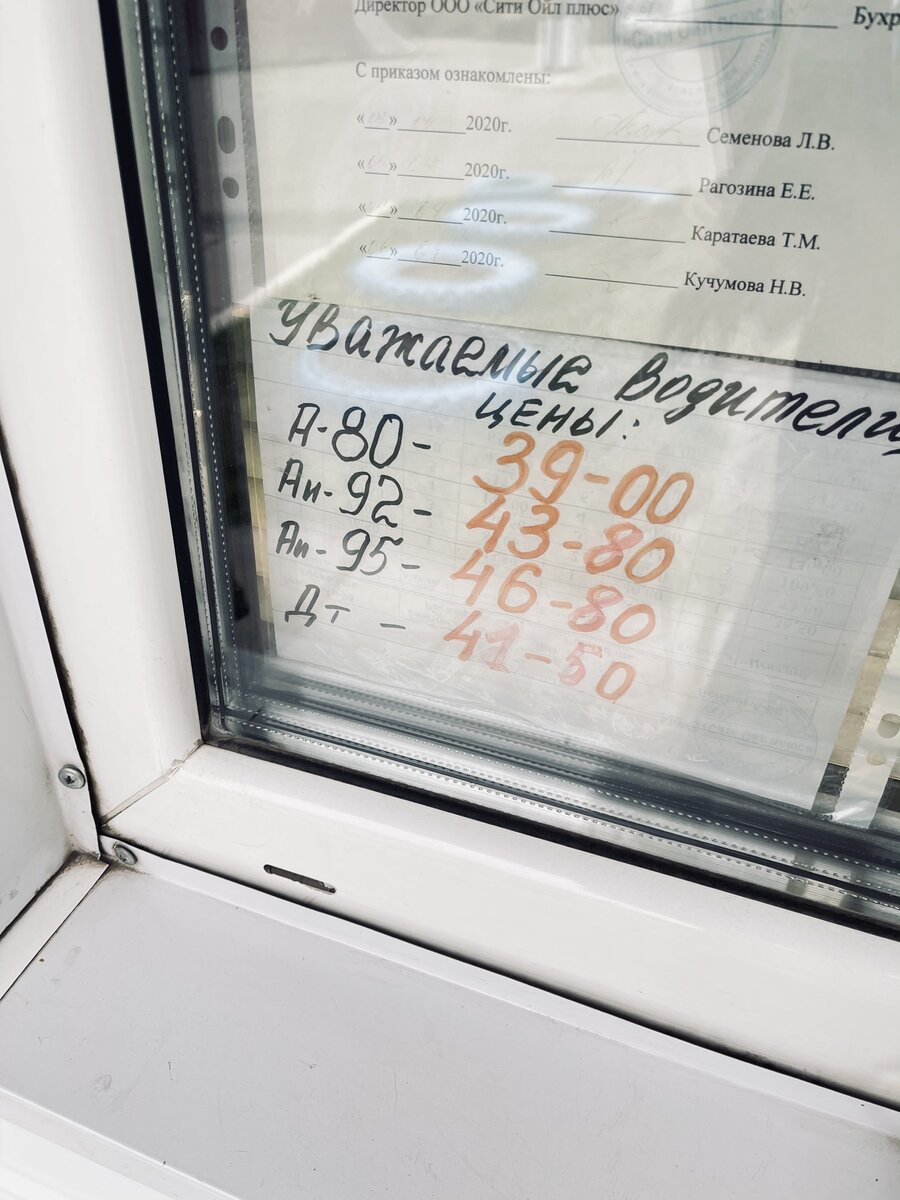 Директор ООО «Сити Ойл плюс» Бухр
С приказом ознакомлены:
«__»______2020г. Семенова Л.В.
«__»______2020г. Рагозина Е.Е.
«__»______2020г. Каратаева Т.М.
«__»______2020г. Кучумова Н.В.
Уважаемые водители
цены:
А-80- 39-00
Аи-92- 43-80
Аи-95- 46-80
Дт - 41-50